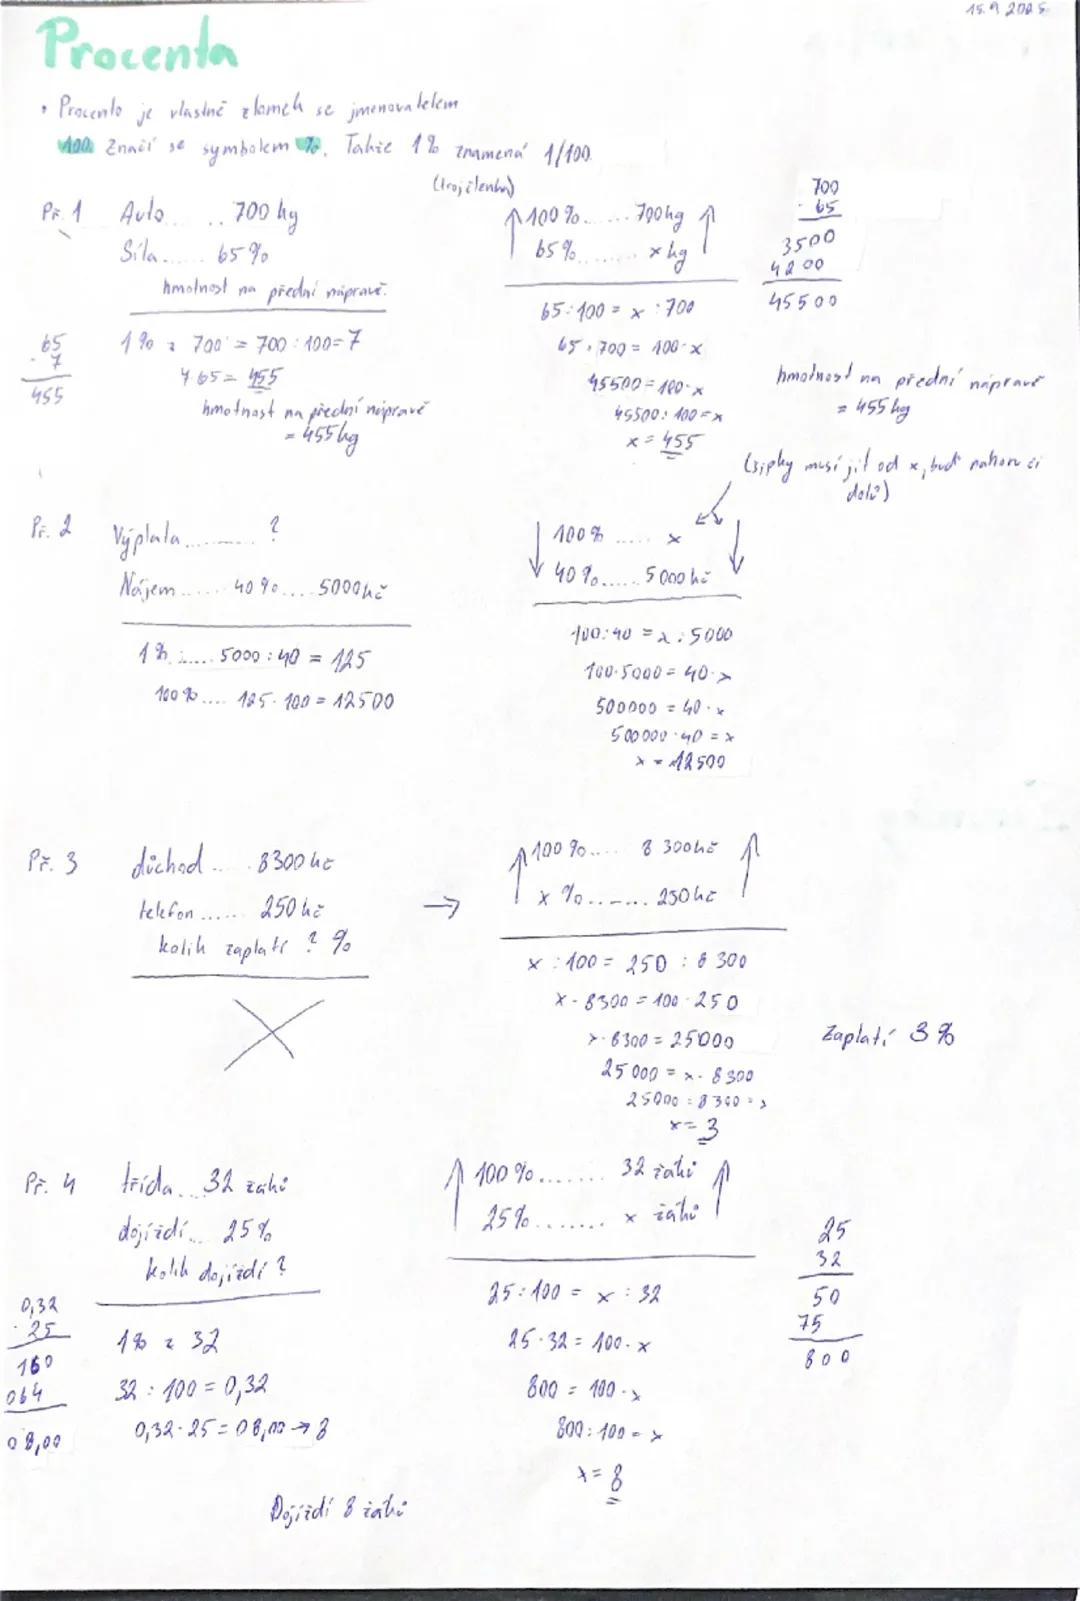 15.9.2025
Procenta
• Procento je vlastně zlomek se jmenovatelem
100. Značí se symbolem %. Takže 1% znamená 1/100.
(trojčlenka)
Př. 1 Auto..... 700 kg
Síla...... 65%
hmotnost na přední nápravě.
1% z 700 = 700 : 100 = 7
7·65 = 455
hmotnost na přední nápravě
= 455kg
65
· 7
455
100%...... 700kg
65%....... x kg
65:100 = x :700
65·700 = 100·x
45500 = 100·x
45500:100 = x
x = 455
700
· 65
3500
4200
45500
hmotnost na přední nápravě
= 455kg
(šipky musí jít od x, buď nahoru či
dolů)
Př. 2 Výplata......... ?
Nájem...... 40%.... 5000kč
1%...... 5000:40 = 125
100%.... 125·100 = 12500
100% ..... x
40%...... 5000kč
100:40 = x:5000
100·5000 = 40·x
500000 = 40·x
500000·40 = x
x = 12500
Př. 3 důchod..... 8300kč
telefon...... 250kč
kolik zaplatí ? %
→
100%.... 8300kč
x %....... 250kč
x :100 = 250 : 8300
x·8300 = 100·250
x·8300 = 25000
25000 = x·8300
25000:8300 = x
x = 3
Zaplatí 3%
Př. 4 třída... 32 žáků
dojíždí... 25%
kolik dojíždí?
1% z 32
32 : 100 = 0,32
0,32·25 = 08,00 → 8
Dojíždí 8 žáků
0,32
· 25
160
064
08,00
100%....... 32 žáků
25%....... x žáků
25:100 = x : 32
25·32 = 100·x
800 = 100·x
800:100 = x
x = 8
25
32
50
75
800